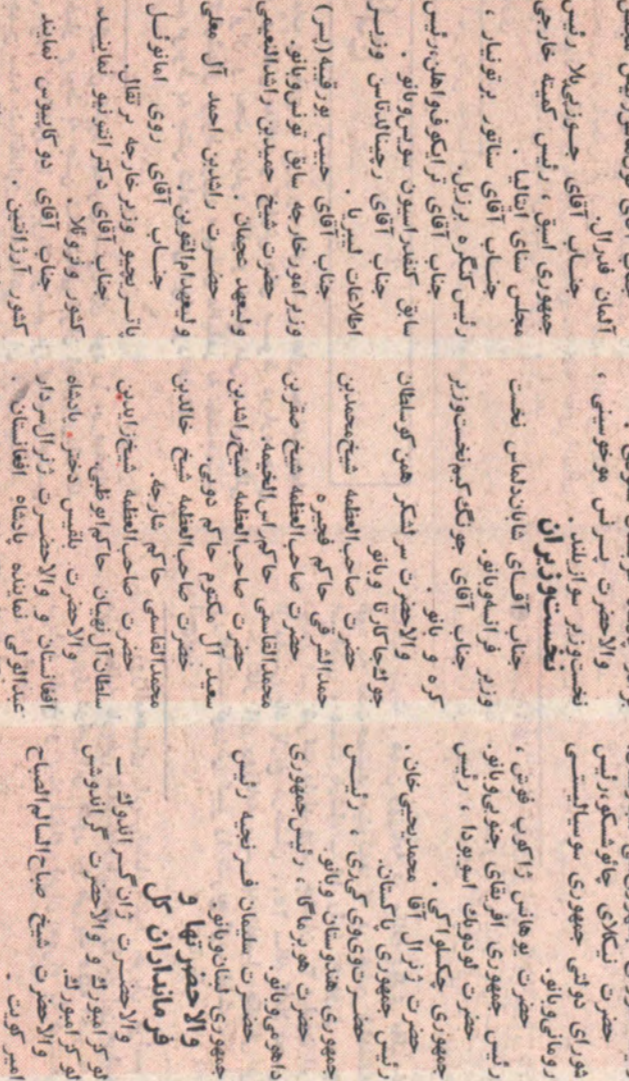 حضرت نیکلای چائوشسکو،رئیس
شورای دولتی جمهوری سوسیالیستی
رومانی‌وبانو.
حضرت یوهانس ژاکوب فوش ،
رئیس جمهوری افریقای جنوبی‌وبانو.
حضرت لودویك اسوبودا ، رئیس
جمهوری چکسلواکی .
حضرت ژنرال آقا محمدیحیی‌خان .
رئیس جمهوری پاکستان.
حضرت‌وی‌وی گی‌ری ، رئیس
جمهوری هندوستان وبانو
حضرت هوبرماگا ، رئیس‌جمهوری
داهومی‌وبانو.
حضرت سلیمان فرنجیه رئیس
جمهوری لبنان‌وبانو.
والاحضرتها و
فرمانداران کل
والاحضرت ژان گراندوك
لوکزامبورك و والاحضرت گراندوشس
لوکزامبورك.
والاحضرت شیخ صباح‌السالم‌الصباح
امیر کویت .
والاحضرت پرنس موخوسینی ،
نخست‌وزیر سوازیلند .
نخست‌وزیران
جناب آقای شابان‌دلماس نخست
وزیر فرانسه‌وبانو.
جناب آقای جونگ‌کیم‌نخست‌وزیر
کره و بانو .
والاحضرت سرلشکر همن‌کوسلطان
جوك‌جاکارتا وبانو
حضرت صاحب‌العظمه شیخ‌محمدبن
حمدالشرقی حاکم فجیره
حضرت صاحب‌العظمه شیخ صقربن
محمدالقاسمی حاکم‌راس‌الخیمه.
حضرت صاحب‌العظمه شیخ‌راشدبن
سعید آل مکتوم حاکم دوبی.
حضرت صاحب‌العظمه شیخ خالدبن
محمدالقاسمی حاکم شارجه.
حضرت صاحب‌العظمه شیخ‌زایدبن
سلطان‌آل‌نهیان حاکم‌ابوظبی.
والاحضرت بلقیس دختر پادشاه
افغانستان و والاحضرت ژنرال‌سردار
عبدالولی نماینده پادشاه افغانستان .
آلمان فدرال.
جناب آقای جوزپی‌پلا رئیس
جمهوری اسبق ، رئیس کمیته خارجی
مجلس سنای ایتالیا .
جناب آقای سناتور پرتونیار ،
رئیس کنگره برزیل.
جناب آقای ترایکوف‌واهلن،رئیس
سابق کنفدراسیون سویس‌وبانو .
جناب آقای رجینالدتاسن وزیر
اطلاعات لیبریا .
جناب آقای حبیب بورقیبه(پسر)
وزیر امورخارجه سابق تونس‌وبانو.
حضرت شیخ حمیدبن راشدالنعیمی
ولیعهد عجمان .
حضرت راشدبن احمد آل معلی
ولیعهدام‌القوین.
جناب آقای روی امانوئل
پاتریچیو وزیر خارجه پرتقال.
جناب آقای دکتر انتونیو نماینده
کشور ونزوئلا .
جناب آقای دوکاپیوس نماینده
کشور آرژانتین .